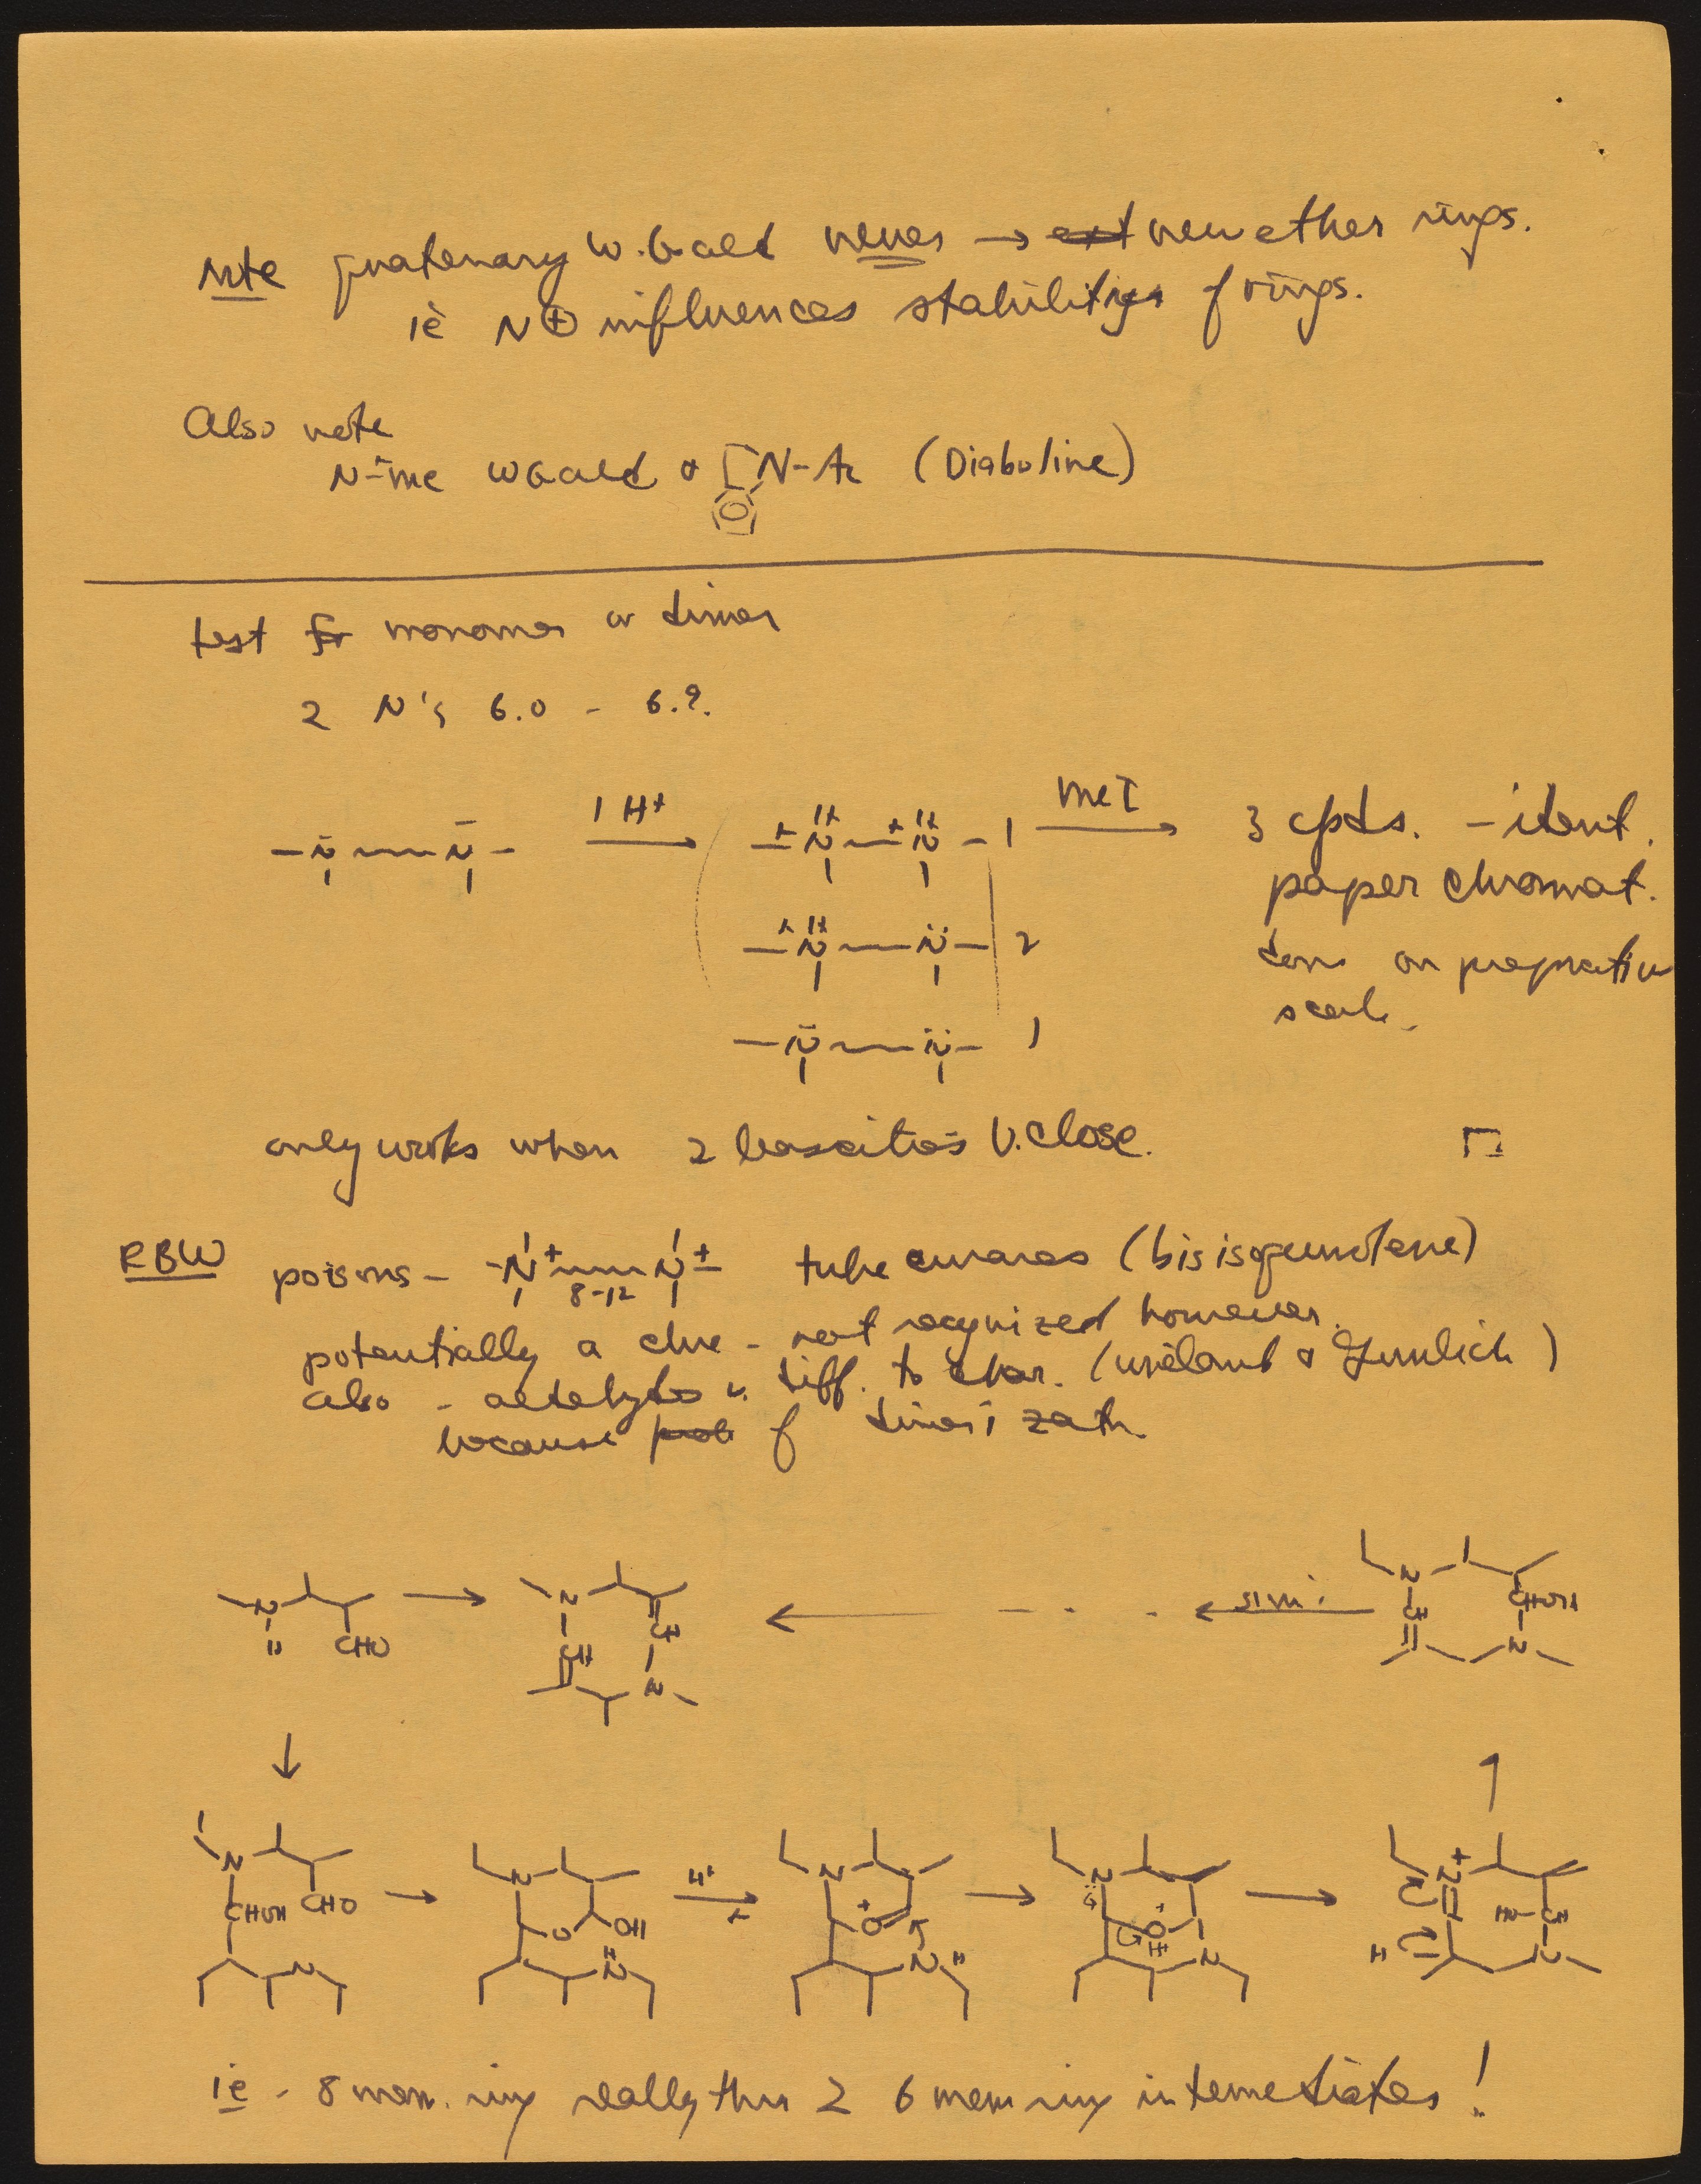 Note quaternary W. G ald never → new ether rings.
ie N⊕ influences stabilities of rings.
Also note
N-me WG ald & [N-Ac (Diaboline)
test for monomer or dimer
2 N's 6.0 - 6.?
-N̈~~~N̈- 1 H+ → H+ H+ 1 MeI → 3 cpds. - ident.
paper chromat.
2 done on preparative
scale.
1
only works when 2 basicities v. close.
RBW poisons - -N+~~~N+- tube curares (bisisoquinolene)
8-12
potentially a clue - not recognized however.
also - aldehydes v. diff. to char. (Wieland & Gumlich)
because of dimerizatn.
N N CH N CHOH
H CHO CH N ← sim. CH N
N N N N N+
CHOH CHO O OH H+ O+ O+ H CH
N H N N H N H N
ie - 8 mem. ring really thru 2 6 mem ring intermediates!